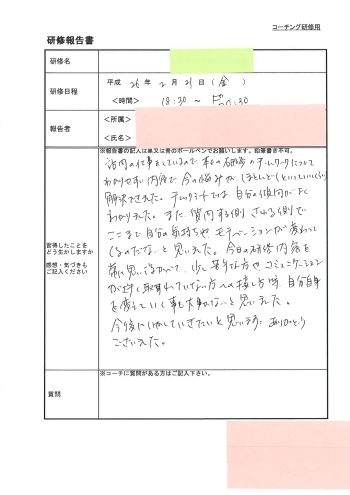 コーチング研修用
研修報告書
研修名
研修日程
平成 26 年 2 月 21 日 ( 金 )
<時間> 18:30 ~ :30
報告者
<所属>
<氏名>
※報告書の記入は黒又は青のボールペンでお願いします。鉛筆書き不可。
習得したことを
どう生かしますか
感想・気づきも
ご記入ください
の仕事をしているので 本日の研修のチームワークについて
わかりやすい内容で 今の悩みが ほとんど(といっていいくらい)
解決できました。 では 自分の傾向が
わかりました。 また 質問する側 される側で
ここまで自分の気持ちや モチベーションが変わって
くるのだな、と 思いました。 今日の研修内容を
常に思い 方や コミュニケーション
が 取れていない方への接し方等、 自分自身
を変えていく事も大事だな、と思いました。
今後に活かしていきたいと思います。 ありがとう
ございました。
質問
※コーチに質問がある方はご記入下さい。